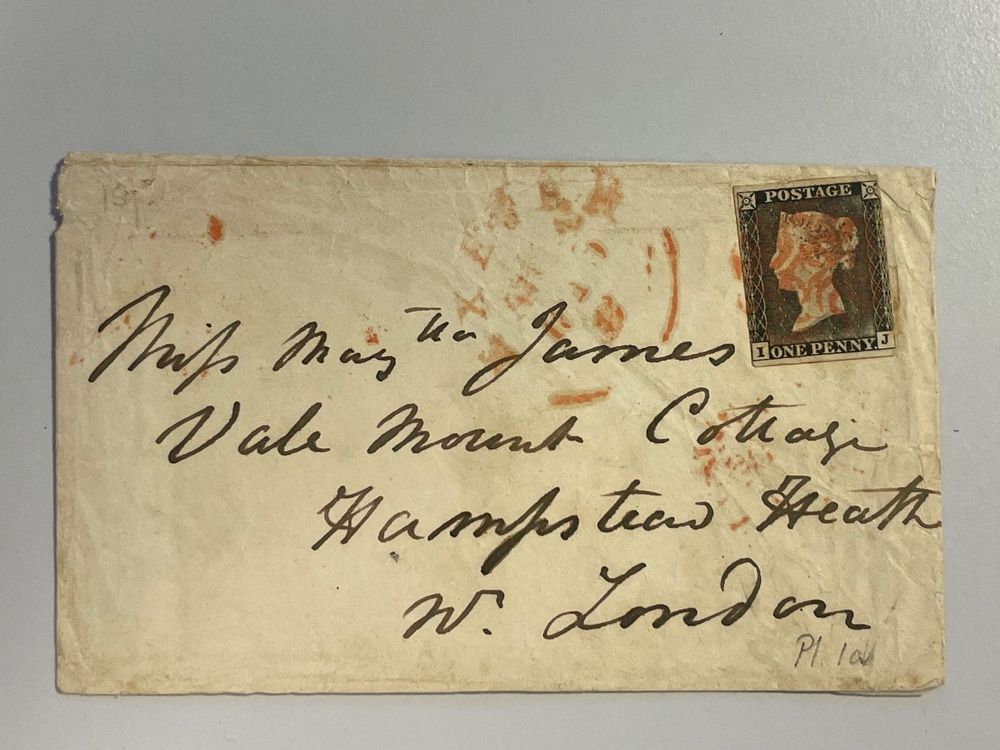 POSTAGE
I ONE PENNY J
Miss Mary
James
Vale Mount Cottage
Hampstead Heath
Nr. London
Pl.